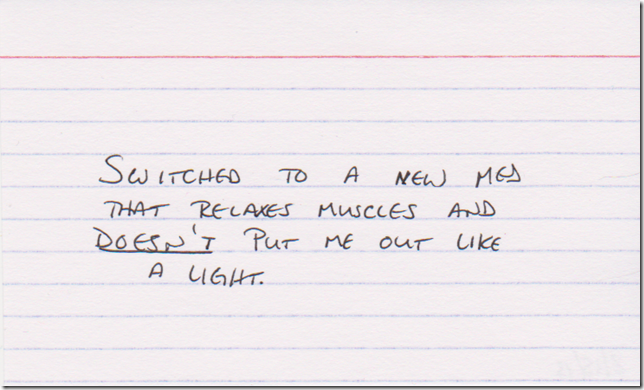 SWITCHED TO A NEW MED
THAT RELAXES MUSCLES AND
DOESN'T PUT ME OUT LIKE
A LIGHT.